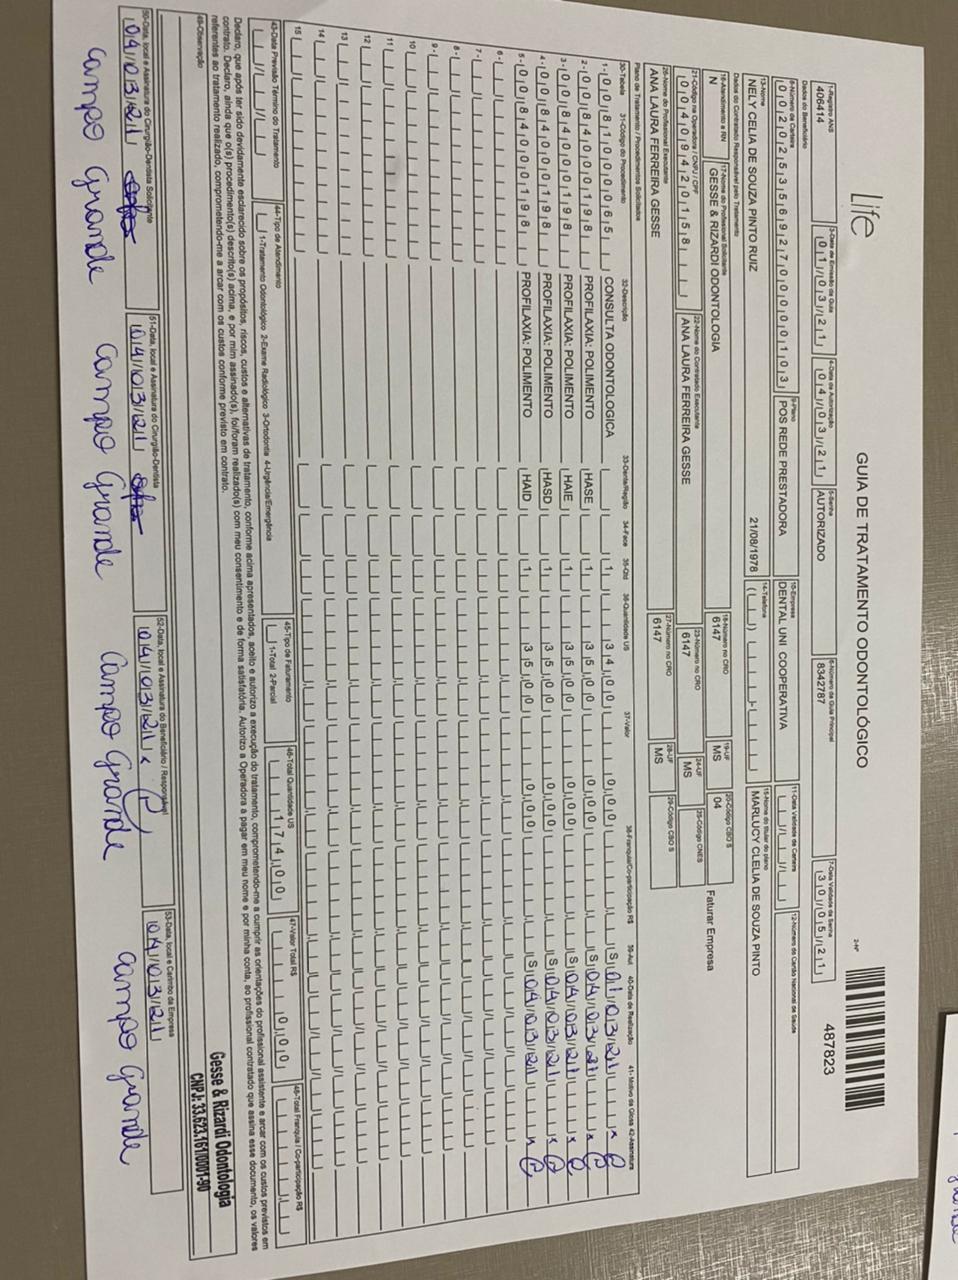 Life
GUIA DE TRATAMENTO ODONTOLÓGICO
2-Nº
487823
1-Registro ANS
406414
3-Data de Emissão da Guia
01/03/21
4-Data da Autorização
04/03/21
5-Senha
AUTORIZADO
6-Número da Guia Principal
8342787
7-Data Validade da Senha
30/05/21
Dados do Beneficiário
8-Número da Carteira
00202535692700000103
9-Plano
POS REDE PRESTADORA
10-Empresa
DENTAL UNI COOPERATIVA
11-Data Validade da Carteira
12-Número do Cartão Nacional de Saúde
13-Nome
NELY CELIA DE SOUZA PINTO RUIZ
21/08/1978
14-Telefone
15-Nome do titular do plano
MARLUCY CLELIA DE SOUZA PINTO
Dados do Contratado Responsável pelo Tratamento
16-Atendimento a RN
N
17-Nome do Profissional Solicitante
GESSE & RIZARDI ODONTOLOGIA
18-Número no CRO
6147
19-UF
MS
20-Código CBO S
04
Faturar Empresa
21-Código na Operadora / CNPJ / CPF
00409420158
22-Nome do Contratado Executante
ANA LAURA FERREIRA GESSE
23-Número no CRO
6147
24-UF
MS
25-Código CNES
26-Nome do Profissional Executante
ANA LAURA FERREIRA GESSE
27-Número no CRO
6147
28-UF
MS
29-Código CBO S
Plano de Tratamento / Procedimentos Solicitados
30-Tabela 31-Código do Procedimento 32-Descrição 33-Dente/Região 34-Face 35-Qtd 36-Quantidade US 37-Valor 38-Franquia/Co-participação R$ 39-Aut 40-Data de Realização 41- Motivo da Glosa 42-Assinatura
1- 00 81000065 CONSULTA ODONTOLOGICA 1 34,00 0,00 S 01/03/21 x
2- 00 84000198 PROFILAXIA: POLIMENTO HASE 1 35,00 0,00 S 04/03/21 x
3- 00 84000198 PROFILAXIA: POLIMENTO HAIE 1 35,00 0,00 S 04/03/21 x
4- 00 84000198 PROFILAXIA: POLIMENTO HASD 1 35,00 0,00 S 04/03/21 x
5- 00 84000198 PROFILAXIA: POLIMENTO HAID 1 35,00 0,00 S 04/03/21 x
6 -
7 -
8 -
9 -
10
11
12
13
14
15
43-Data Previsão Término do Tratamento
44-Tipo de Atendimento
1-Tratamento Odontológico 2-Exame Radiológico 3-Ortodontia 4-Urgência/Emergência
45-Tipo de Faturamento
1-Total 2-Parcial
46-Total Quantidade US
174,00
47-Valor Total R$
0,00
48-Total Franquia / Co-participação R$
Declaro, que após ter sido devidamente esclarecido sobre os propósitos, riscos, custos e alternativas de tratamento, conforme acima apresentados, aceito e autorizo a execução do tratamento, comprometendo-me a cumprir as orientações do profissional assistente e arcar com os custos previstos em
contrato. Declaro, ainda que o(s) procedimento(s) descrito(s) acima, e por mim assinado(s), foi/foram realizado(s) com meu consentimento e de forma satisfatória. Autorizo a Operadora a pagar em meu nome e por minha conta, ao profissional contratado que assina esse documento, os valores
referentes ao tratamento realizado, comprometendo-me a arcar com os custos conforme previsto em contrato.
49-Observação
Gesse & Rizardi Odontologia
CNPJ: 33.623.161/0001-90
50-Data, local e Assinatura do Cirurgião-Dentista Solicitante
04/03/21
51-Data, local e Assinatura do Cirurgião-Dentista
04/03/21
52-Data, local e Assinatura do Beneficiário / Responsável
04/03/21 x
53-Data, local e Carimbo da Empresa
04/03/21
Campo Grande Campo Grande Campo Grande Campo Grande